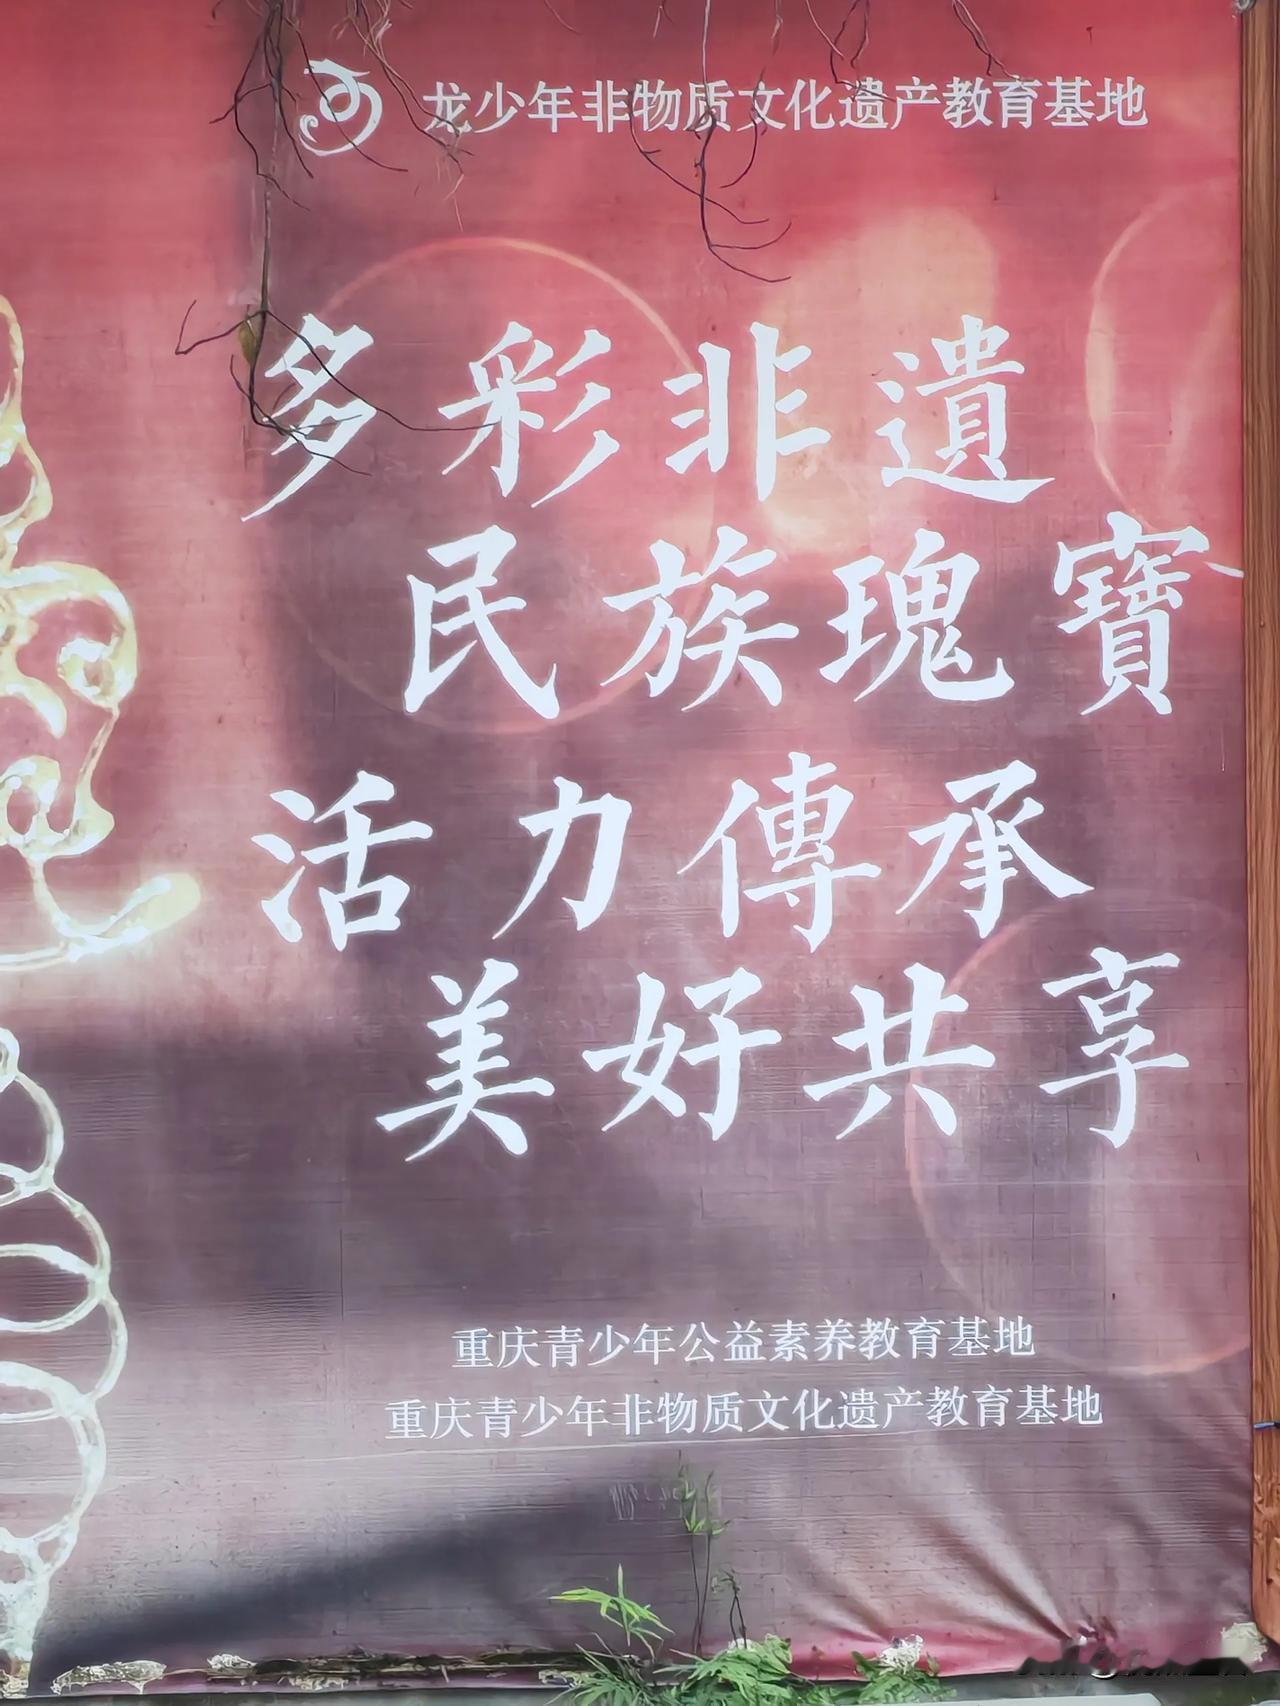 龙少年非物质文化遗产教育基地
多彩非遺
民族瑰寶
活力傳承
美好共享
重庆青少年公益素养教育基地
重庆青少年非物质文化遗产教育基地